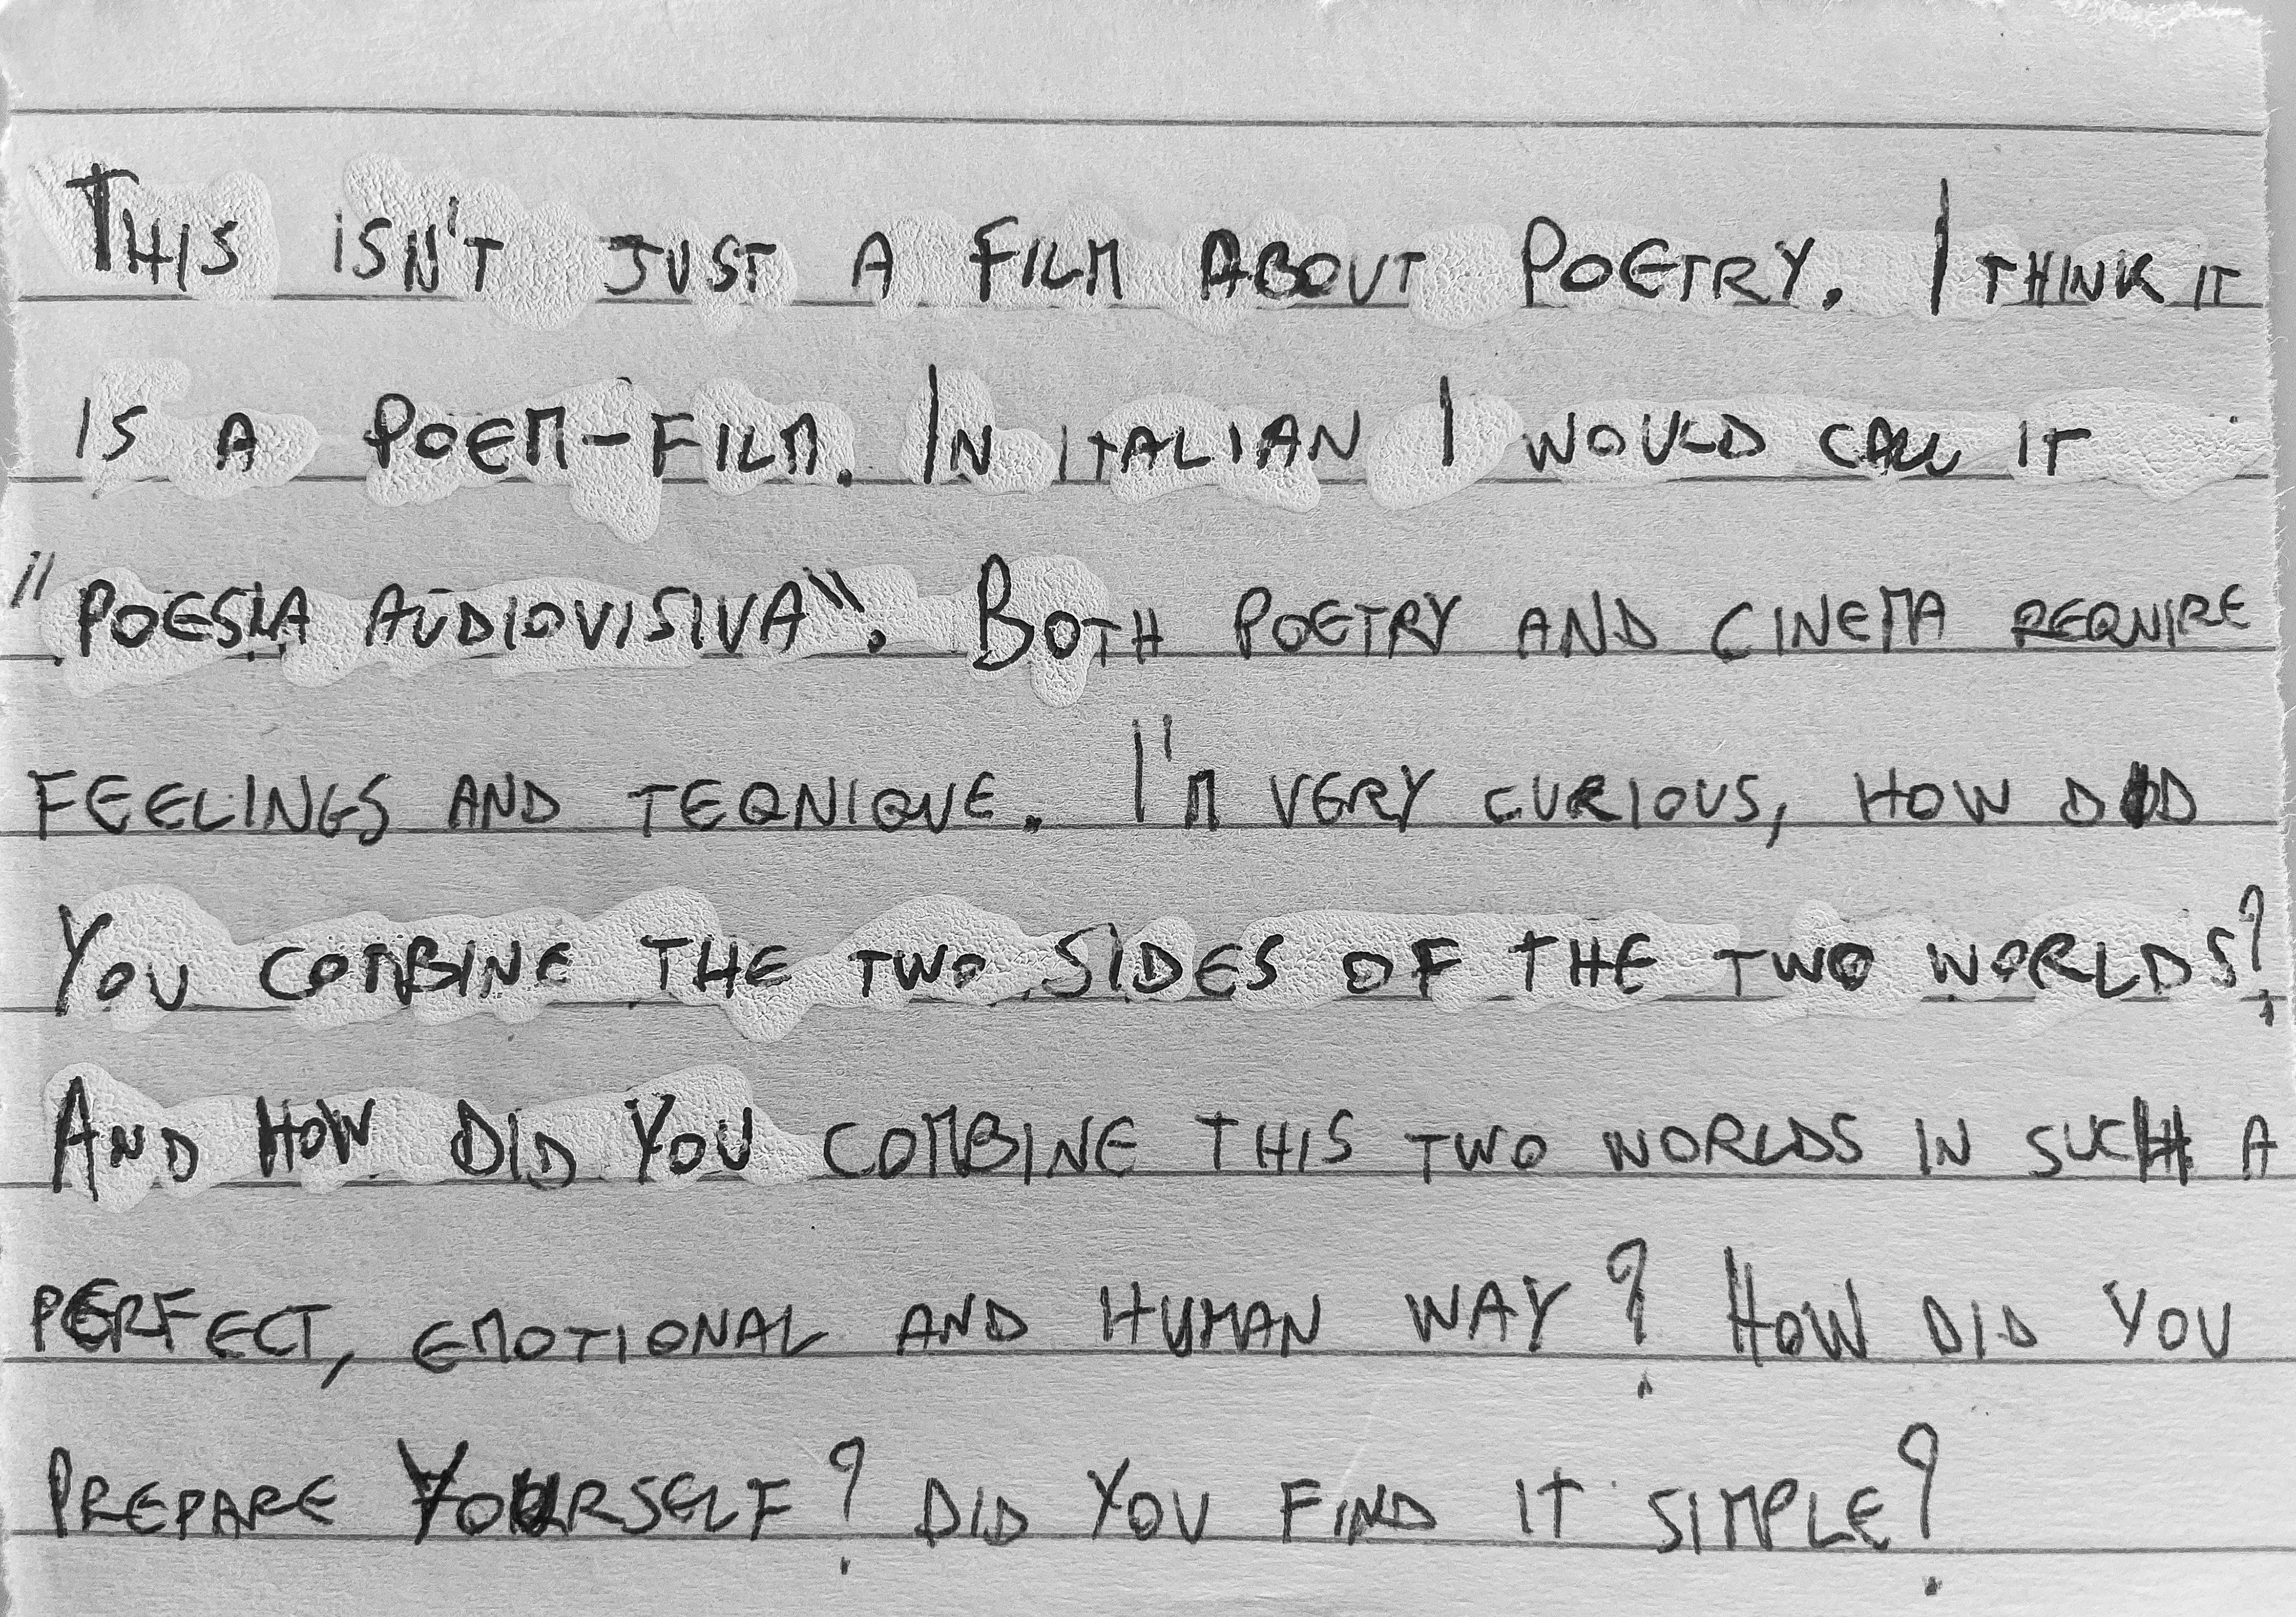 THIS ISN'T JUST A FILM ABOUT POETRY. I THINK IT
IS A POEM-FILM. IN ITALIAN I WOULD CALL IT
"POESIA AUDIOVISIVA". BOTH POETRY AND CINEMA REQUIRE
FEELINGS AND TEQNIQUE. I'M VERY CURIOUS, HOW DID
YOU COMBINE THE TWO SIDES OF THE TWO WORLDS?
AND HOW DID YOU COMBINE THIS TWO WORLDS IN SUCH A
PERFECT, EMOTIONAL AND HUMAN WAY? HOW DID YOU
PREPARE YOURSELF? DID YOU FIND IT SIMPLE?